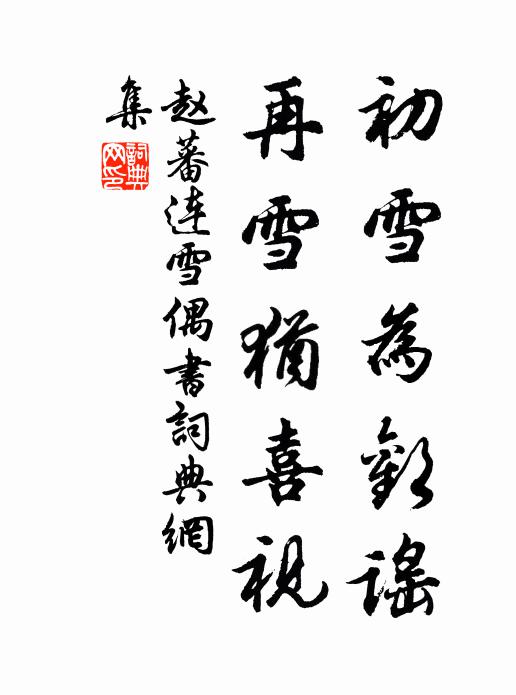 初雪為歡謠
再雪猶喜視
赵蕃連雪偶書詞典網
集
詞典
网印